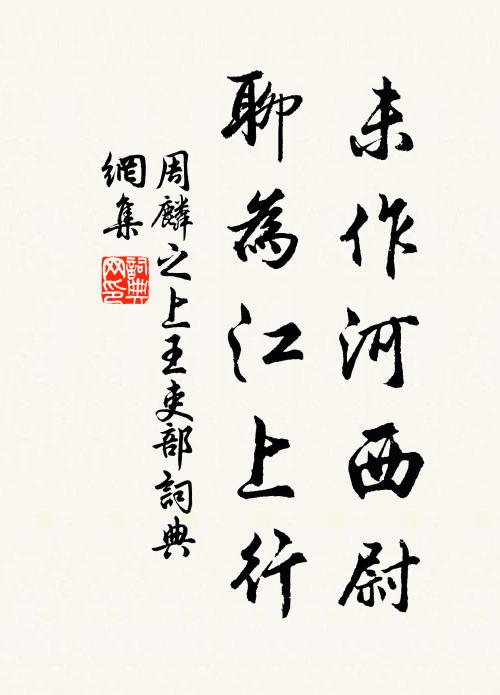 未作河西尉
聊為江上行
周麟之上王吏部詞典
網集
詞典網印